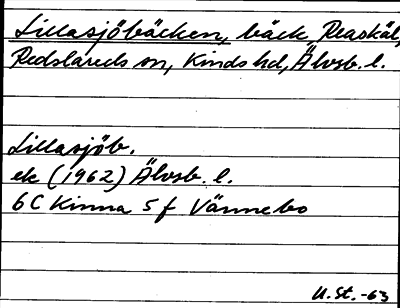 Lillasjöbäcken, bäck Reaskäl,
Redslareds sn, Kinds hd, Älvsb. l.
Lillasjöb.
ek (1962) Älvsb. l.
6C Kinna 5 f Vännebo
U. St. -63